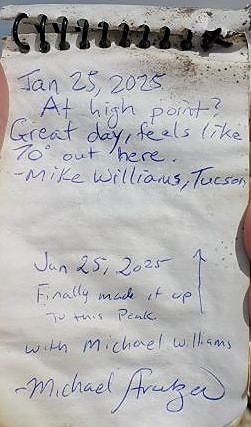 Jan 25, 2025
At high point?
Great day, feels like
70° out here.
-Mike Williams, Tucson
Jan 25, 2025
Finally made it up
To this Peak.
with Michael Williams
-Michael